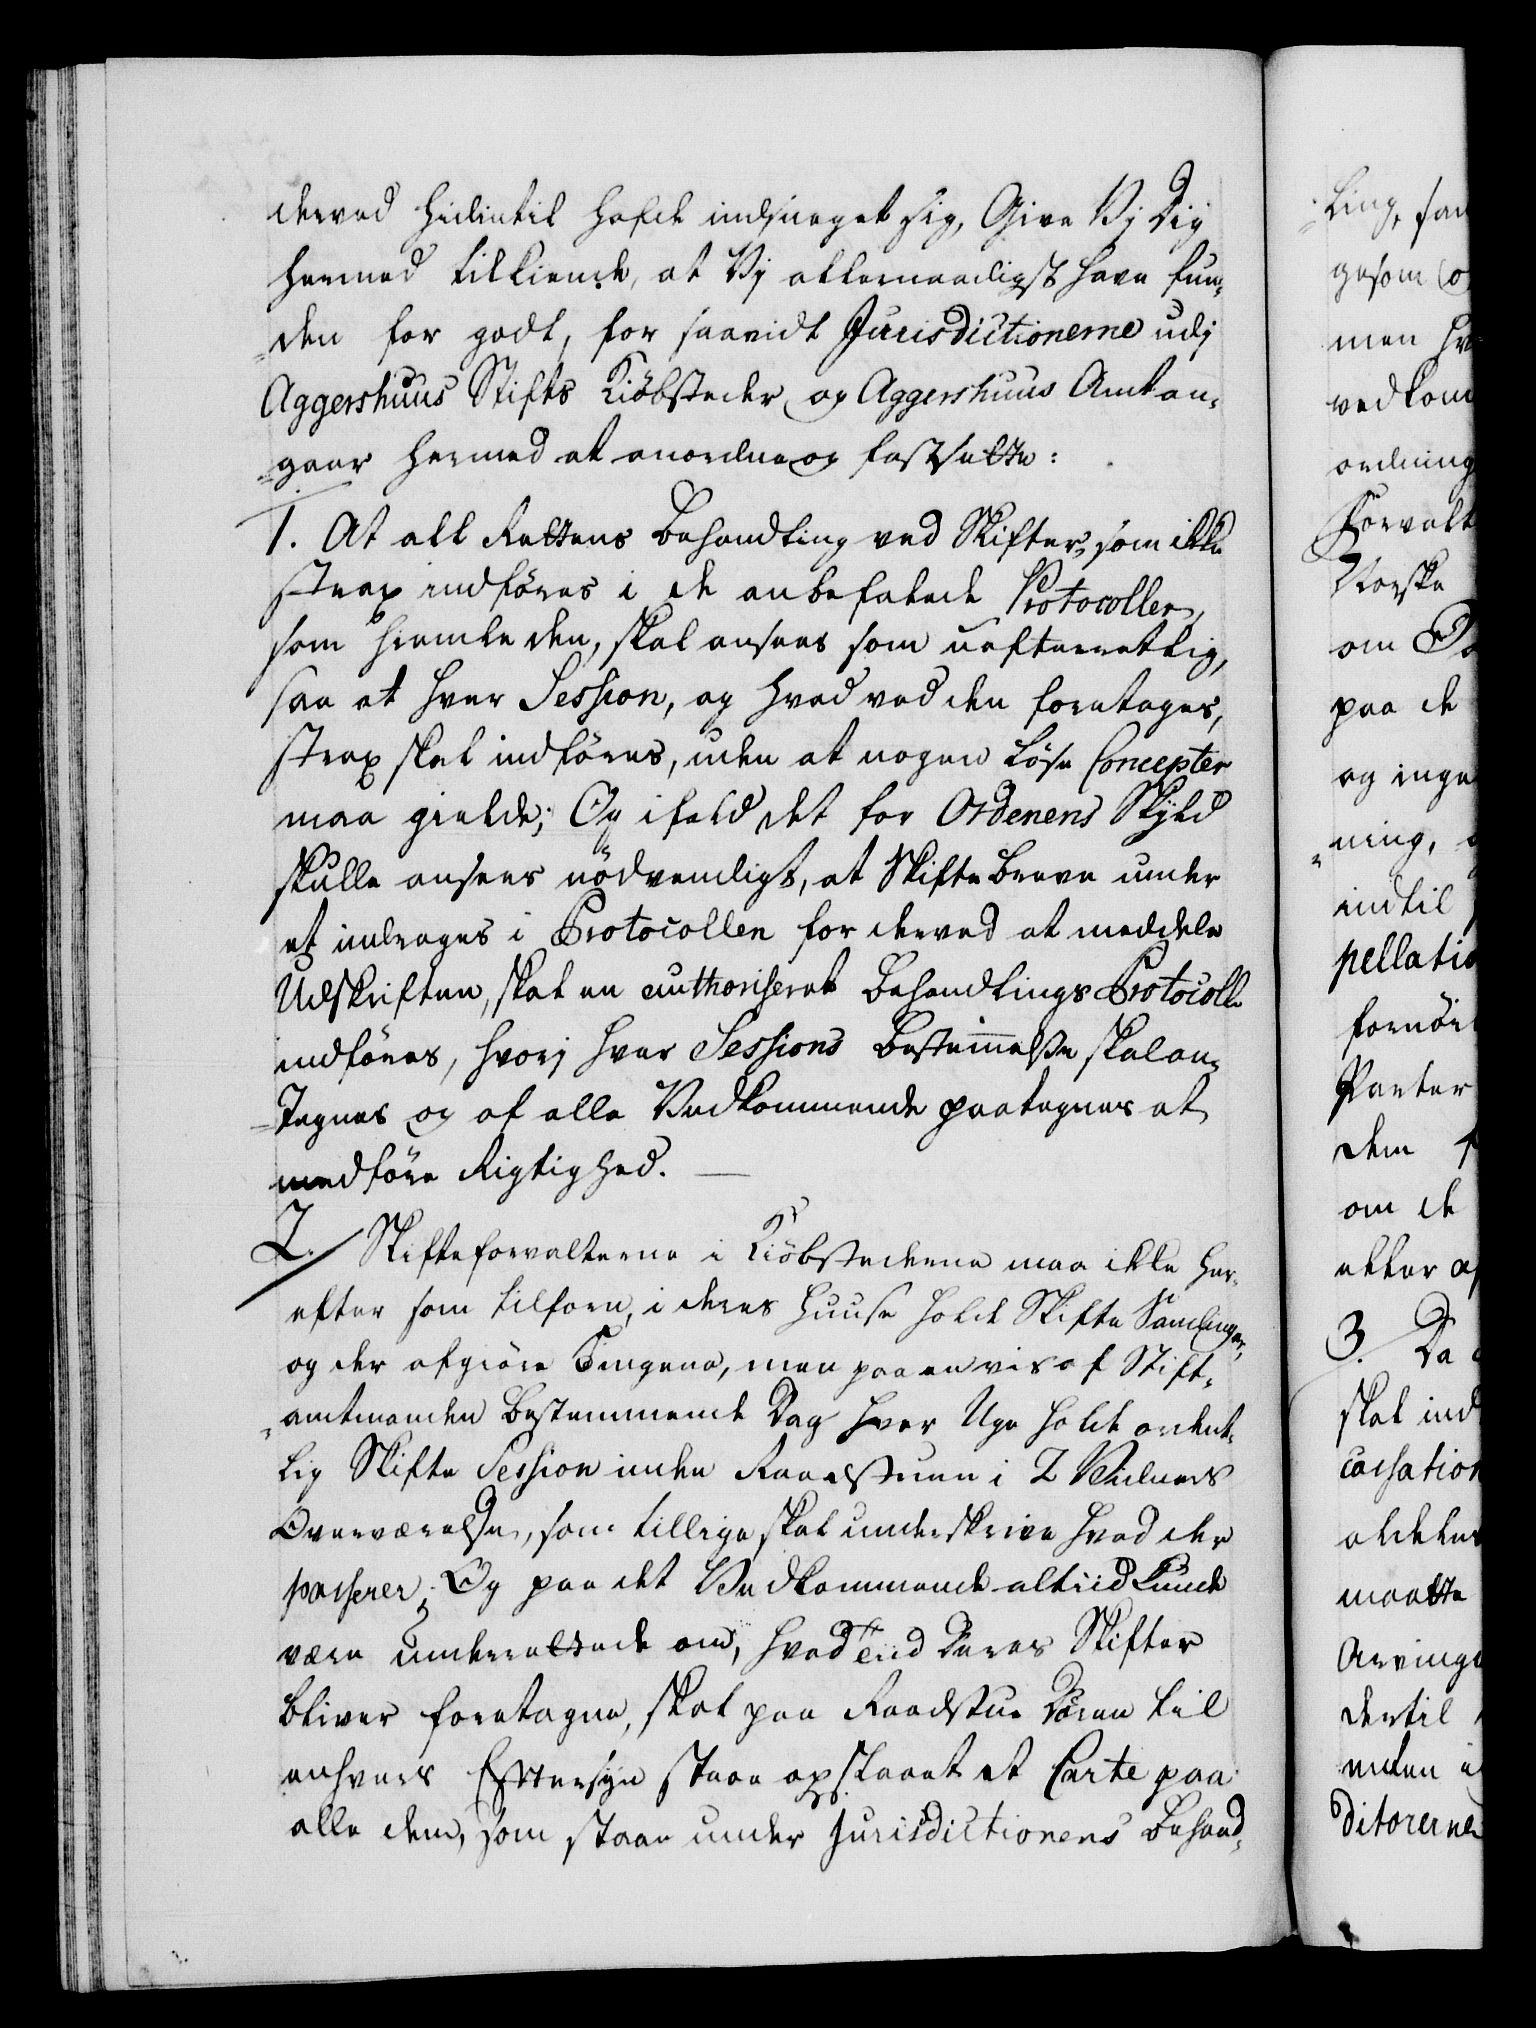 derved hidintil hafde indsneget sig, Give Vj Dig
hermed tilkiende, at Vj allernaadigst have fun-
den for godt, for saavidt Jurisdictionerne udj
Aggershuus Stifts Kiöbsteder og Aggershuus Amt an-
gaar hermed at anordne og fastsætte:
1. At all Rettens Behandling ved Skifter, som ikke
strax indföres i de anbefalede Protocoller,
som hiemle den, skal ansees som uefterrettlig,
saa at hver Session, og hvad ved den foretages,
strax skal indföres, uden at nogen löse Concepter
maa gielde; Og ifald det for Ordenens Skyld
skulle ansees nödvendigt, at Skifte Breve under
et indrages i Protocollen for derved at meddele
Udskriften, skal en authoriseret Behandlings Protocoll
indföres, hvorj hver Sessions Bestemmelse skal an-
tegnes og af alle Vedkommende paategnes at
medföre Rigtighed.
2. Skifteforvalterne i Kiöbstederne maa ikke her-
efter som tilforn, i deres Huuse holde Skifte Samlinger,
og der afgiöre Tingene, men paa en vis af Stift-
amtmanden bestemmende Dag hver Uge holde ordent-
lig Skifte Session inden Raadstuen i 2 Vidners
Overværelse, som tillige skal underskrive hvad der
passerer; Og paa det Vedkommende altiid kunde
være underrettede om, hvad Tiid Deres Skifter
bliver foretagne, skal paa Raadstue Dören til
enhvers Eftersyn staae opslaaet et Carte paa
alle dem, som staae under Jurisdictionens Behand-
ling, saa
gesom
men
vedkom
ordning
Forvalt
Norske
om
paa de
og inge
ning,
indtil
pellatio
fornöi
Parter
dem
om de
etter
3. Da
skal ind
cassation
aldeles
maatte
Arvinge
dertil
inden
ditorerne